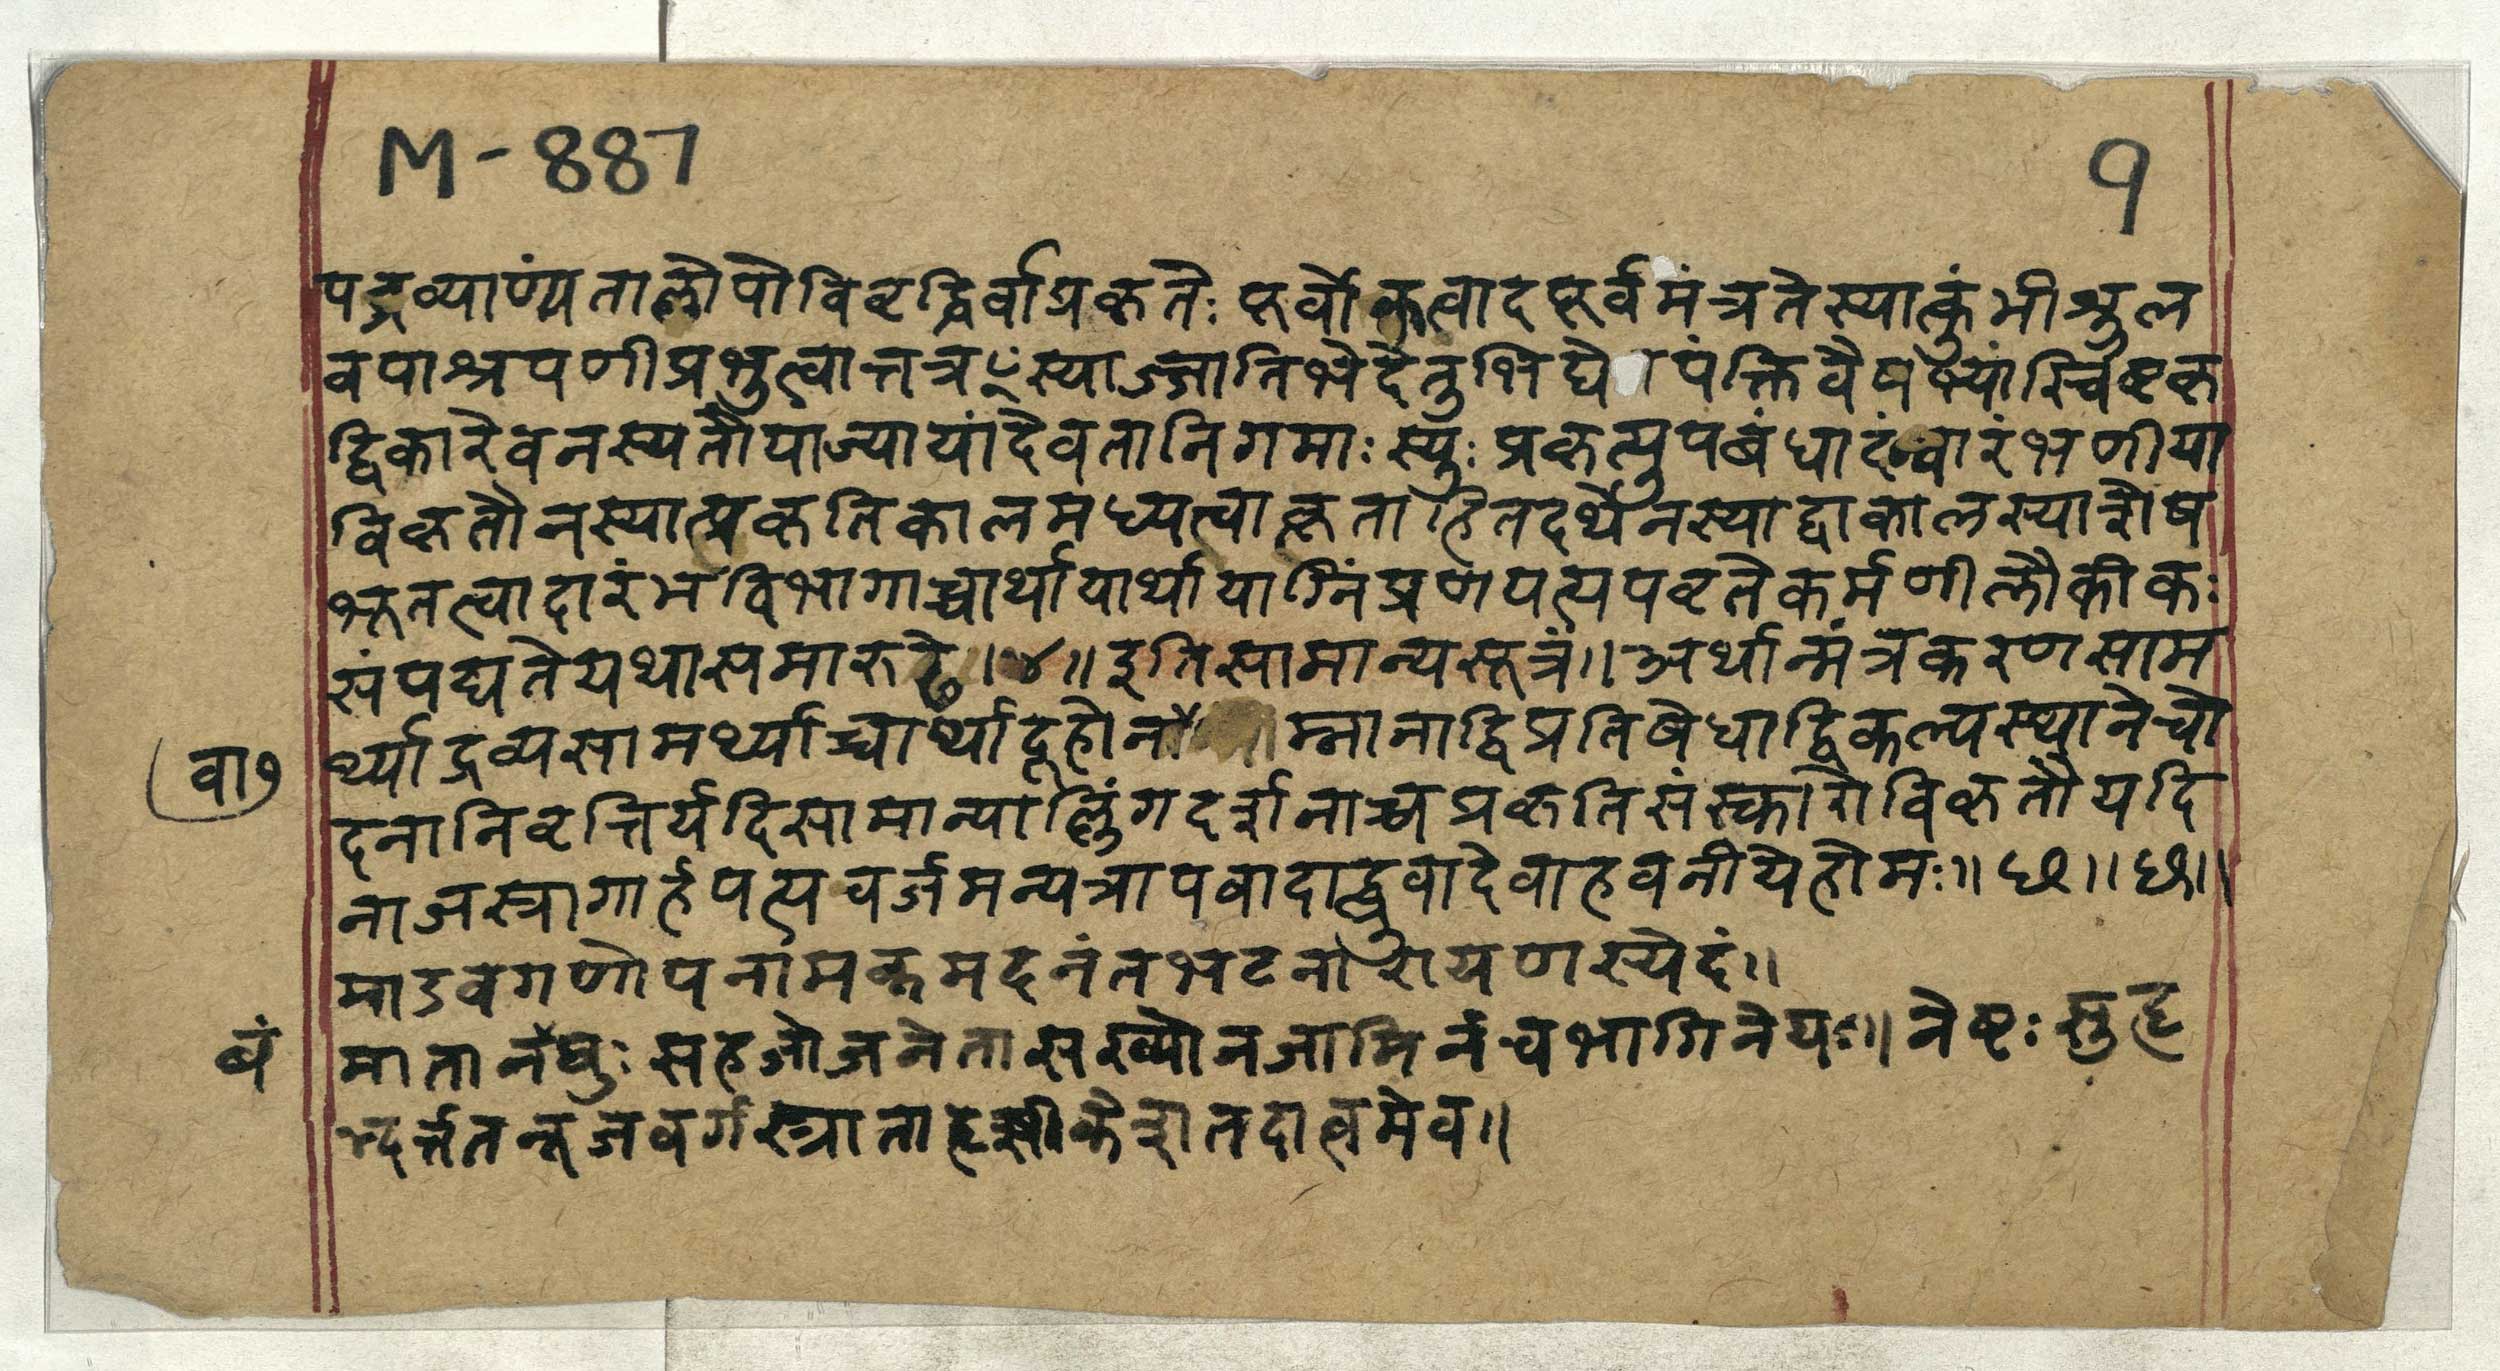 M-887
१
पद्रव्याण्यंतालोपोविवृद्धिर्वाप्रकृतेः पूर्वोक्तत्वादपूर्वमंत्रतेस्यात्कुंभीशूल
वपाश्रपणीप्रभुत्वात्तत्रꣳस्याज्जातिभेदेतुभिद्ये पंक्तिवैषम्यांस्विष्टकृ
द्विकारेवनस्यतौयाज्यायांदेवतानिगमाः स्युः प्रकृत्युपबंधादंन्वारंभणीया
विकृतौनस्यात्प्रकृतिकालमध्यत्वात्कृताहितदर्थेनस्याद्वाकालस्याशेष
भूतत्वादारंभविभागाच्चार्थायार्थायाग्निंप्रणयत्यपवृत्तेकर्मणीलौकीकः
संपद्यतेयथासमारूढे॥४॥ इतिसामान्यसूत्रं॥ अर्थान्मंत्रकरणसाम
र्थ्याद्रव्यसामर्थ्याच्चार्थादूहोना म्नानाद्विप्रतिषेधाद्विकल्पस्थानेचो
वा७
दनानिवृत्तिर्यदिसामान्याल्लिंगदर्शनाच्चप्रकृतिसंस्कारोविकृतौयदि
नाजस्त्रागार्हपत्यवर्जमन्यत्रापवादाद्ध्रुवादेवाहवनीयेहोमः॥ छ॥ छ॥
माडवगणोपनामकमदनंतभटनारायणस्येदं॥
बं
मातानबंधुः सहजोजनेतासख्योनजामिर्नचभागिनेयः॥ नेष्टः सुहृ
न्दर्त्ततनूजवर्गस्त्राता तदात्वमेव॥